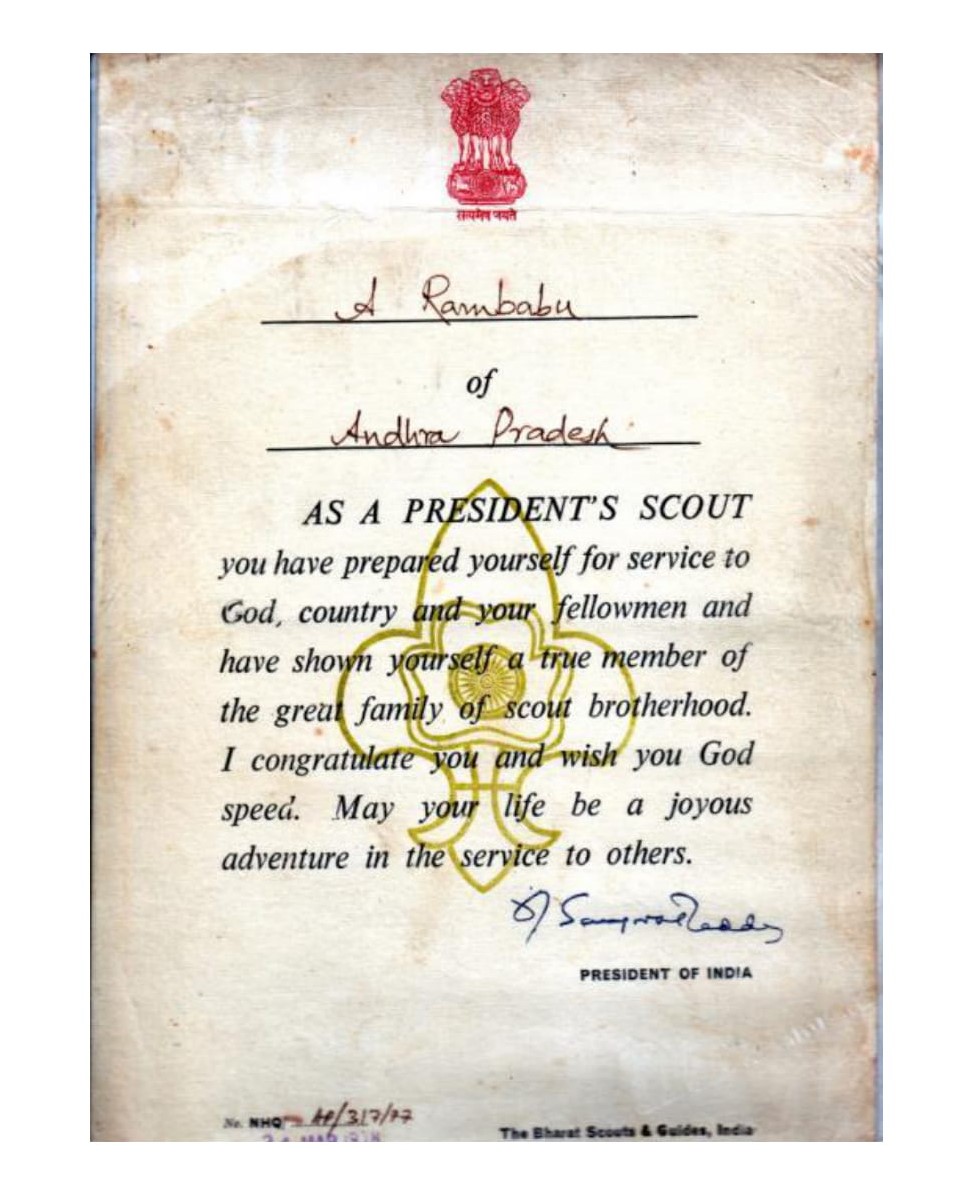 सत्यमेव जयते
A Rambabu
of
Andhra Pradesh
AS A PRESIDENT'S SCOUT
you have prepared yourself for service to
God, country and your fellowmen and
have shown yourself a true member of
the great family of scout brotherhood.
I congratulate you and wish you God
speed. May your life be a joyous
adventure in the service to others.
PRESIDENT OF INDIA
No. NHQ AP/317/77
MAR
The Bharat Scouts & Guides, India